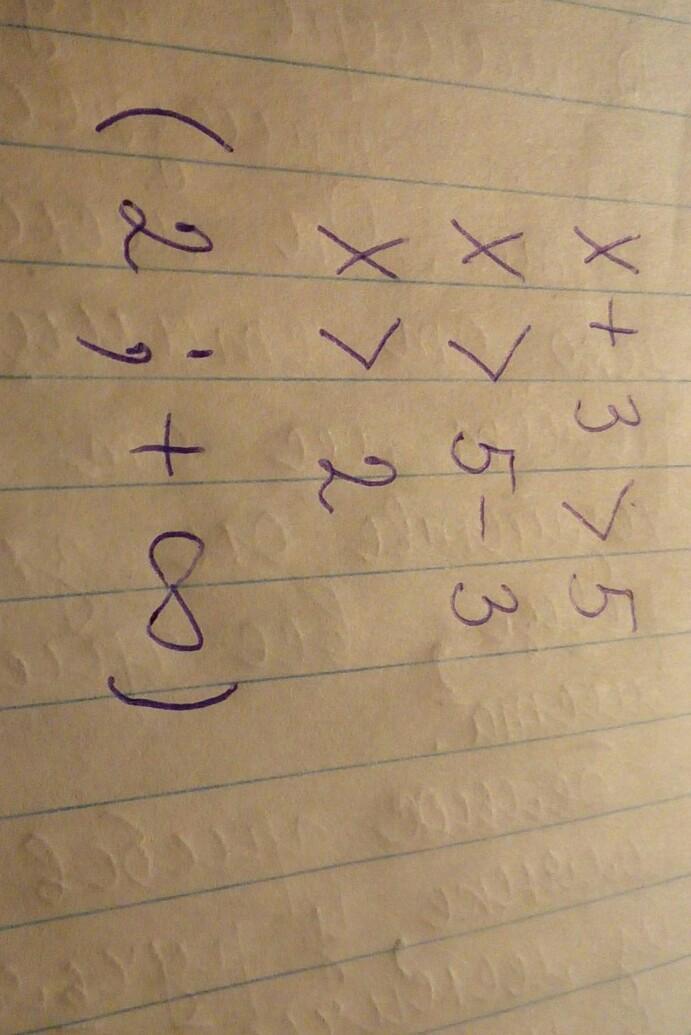 x + 3 > 5
x > 5 - 3
x > 2
(2 ; + ∞)